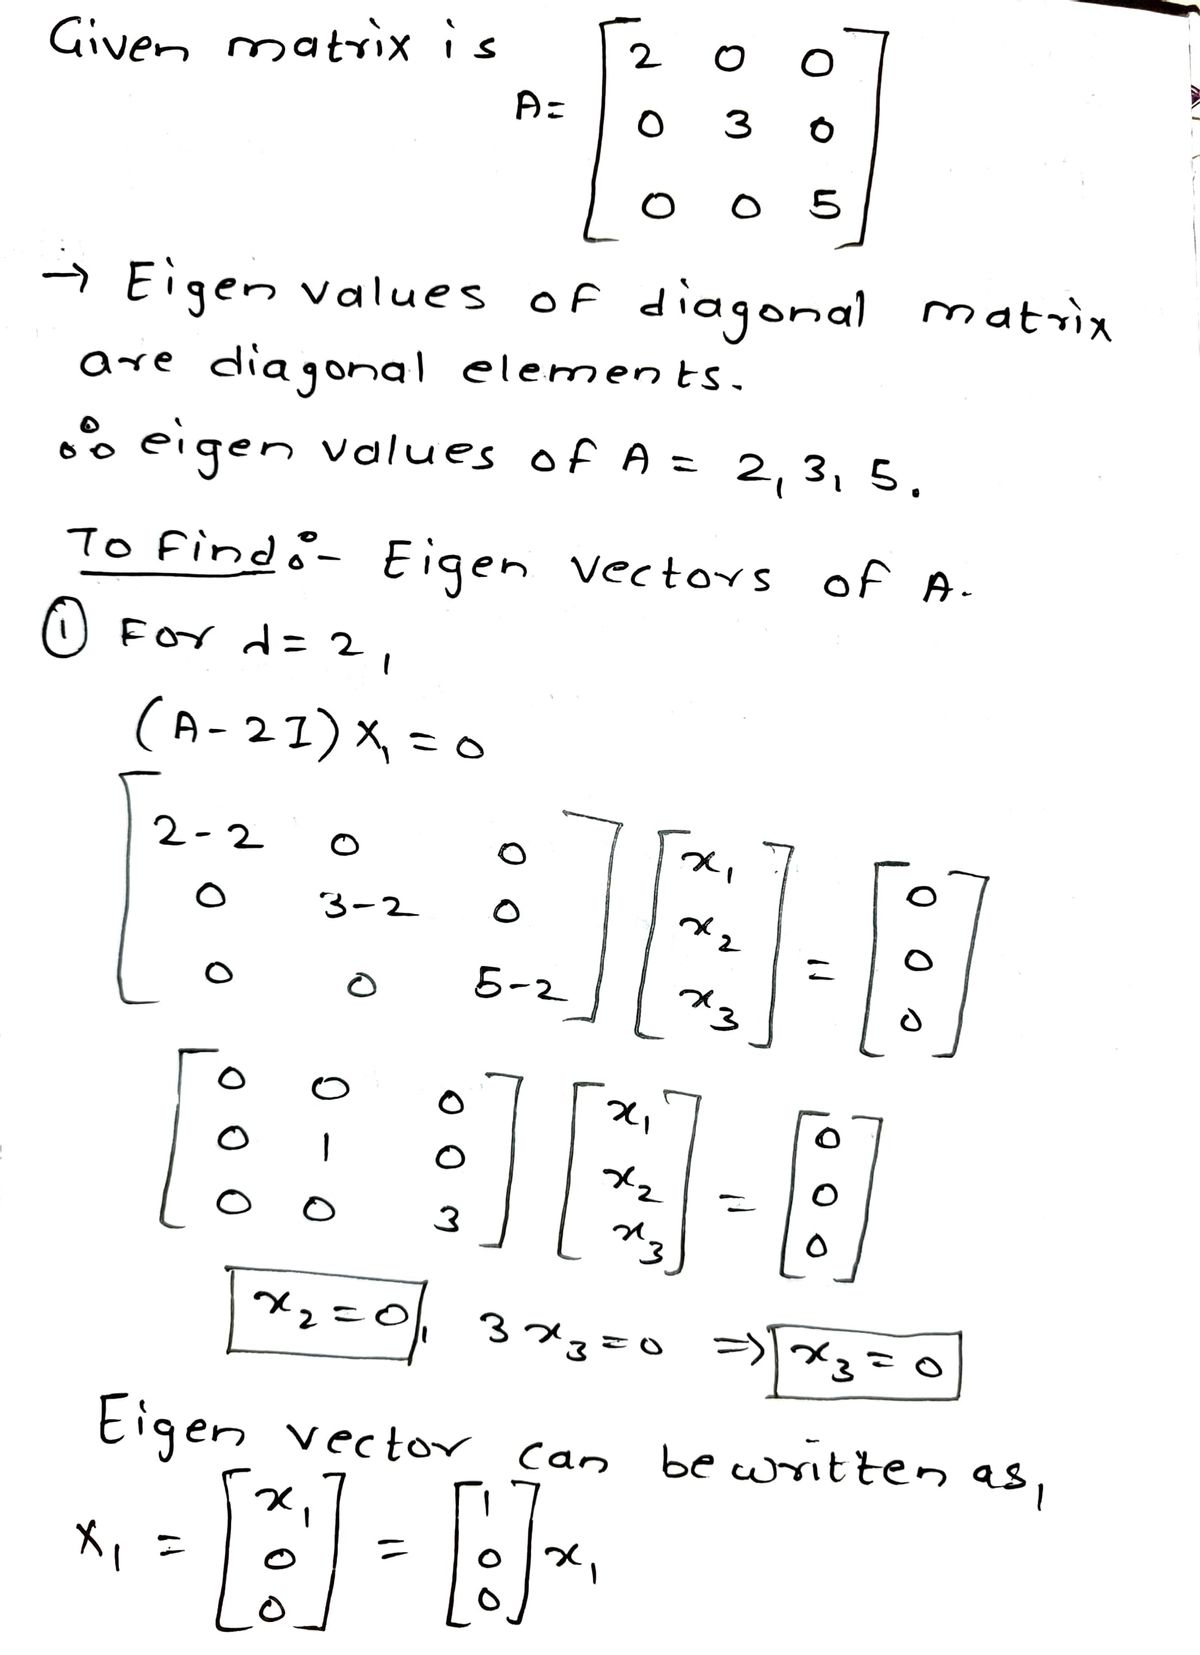 Given matrix is
A= [2 0 0
0 3 0
0 0 5]
→ Eigen values of diagonal matrix
are diagonal elements.
∴ eigen values of A = 2, 3, 5.
To Find:- Eigen vectors of A.
① For d=2,
(A-2I)X₁=0
[2-2 0 0
0 3-2 0
0 0 5-2] [x₁
x₂
x₃] = [0
0
0]
[0 0 0
0 1 0
0 0 3] [x₁
x₂
x₃] = [0
0
0]
x₂=0, 3x₃=0 => x₃=0
Eigen vector can be written as,
X₁ = [x₁
0
0] = [1
0
0] x₁